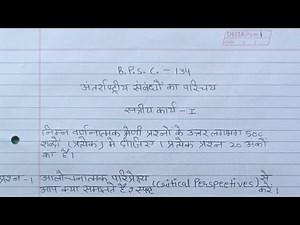 B. P. S. C. - 134
अंतर्राष्ट्रीय संबंधों का परिचय
सत्रीय कार्य - I
निम्न वर्णनात्मक श्रेणी प्रश्नों के उत्तर लगभग 500
शब्दों (प्रत्येक) में दीजिए। प्रत्येक प्रश्न 20 अंकों
का है।
प्रश्न - 1 आलोचनात्मक परिप्रेक्ष्य (Critical Perspectives) से
आप क्या समझते हैं? स्पष्ट करें।